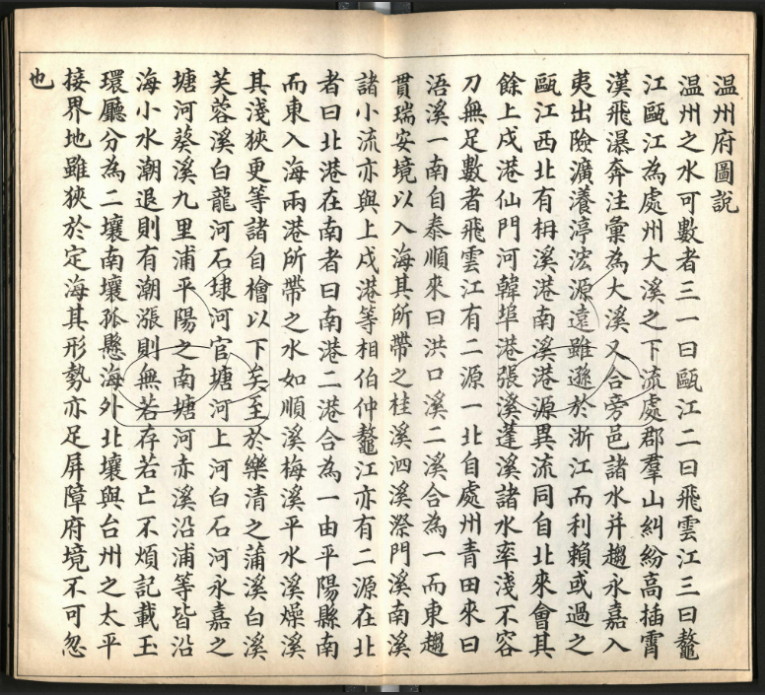 温州府圖説
温州之水可數者三一曰甌江二曰飛雲江三曰鼇
江甌江為處州大溪之下流處郡羣山糾紛高插霄
漢飛瀑奔注彙為大溪又合旁邑諸水并趨永嘉入
夷出險瀇瀁渟浤源遠雖遜於浙江而利賴或過之
甌江西北有枏溪港南溪港源異流同自北來會其
餘上戍港仙門河韓埠港張溪蓬溪諸水率淺不容
刀無足數者飛雲江有二源一北自處州青田來曰
浯溪一南自泰順來曰洪口溪二溪合為一而東趨
貫瑞安境以入海其所帶之桂溪泗溪漈門溪南溪
諸小流亦與上戍港等相伯仲鼇江亦有二源在北
者曰北港在南者曰南港二港合為一由平陽縣南
而東入海兩港所帶之水如順溪梅溪平水溪燥溪
其淺狹更等諸自檜以下矣至於樂清之蒲溪白溪
芙蓉溪白龍河石埭河官塘河上河白石河永嘉之
塘河葵溪九里浦平陽之南塘河赤溪沿浦等皆沿
海小水潮退則有潮漲則無若存若亡不煩記載玉
環廳分為二壤南壤孤懸海外北壤與台州之太平
接界地雖狹於定海其形勢亦足屏障府境不可忽
也